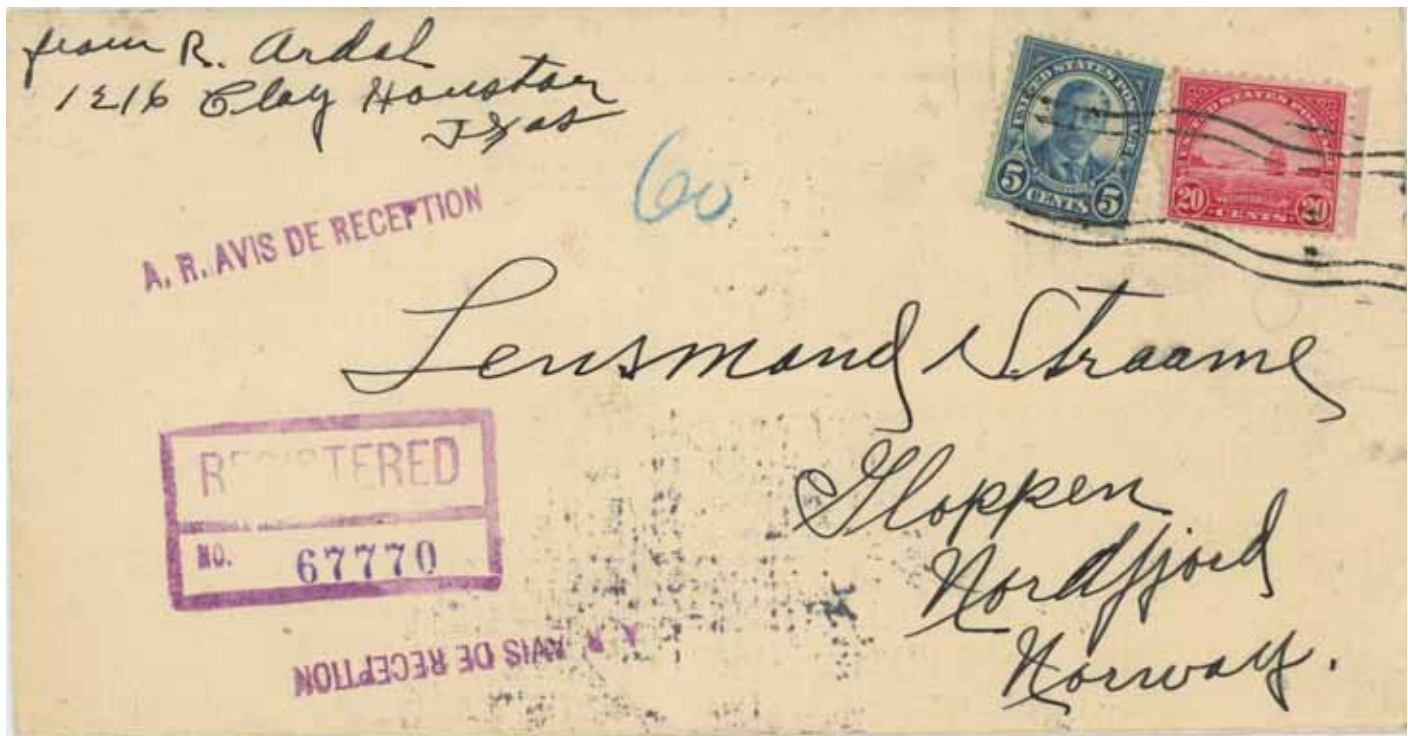 from R. Ardal
1216 Clay Houston
Texas
60
A. R. AVIS DE RECEPTION
UNITED STATES POSTAGE
5 CENTS 5
UNITED STATES POSTAGE
20 CENTS 20
Lensmand Straume
Gloppen
Nordfjord
Norway.
REGISTERED
NO. 67770
A. R. AVIS DE RECEPTION